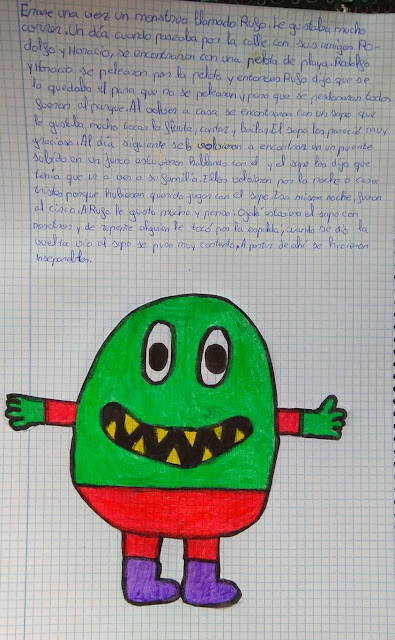 Erase una vez un monstruo llamado Rufo. Le gustaba mucho
correr. Un día cuando paseaba por la calle con sus amigos Ro-
dolfo y Horacio, se encontraron con una pelota de playa. Rodolfo
y Horacio se pelearon por la pelota y entonces Rufo dijo que se
la quedaba el para que no se pelearan y para que se perdonaran todos
fueron al parque. Al volver a casa se encontraron con un sapo que
le gustaba mucho tocar la flauta, cantar y bailar. El sapo les parecio muy
gracioso. Al día siguiente se lo volvieron a encontrar en un puente
subido en un junco estuvieron hablando con el y el sapo les dijo que
tenia que ir a ver a su familia. Ellos volvieron por la noche a casa
tristes porque hubieran querido jugar con el sapo. Esa misma noche, fueron
al circo. A Rufo le gusto mucho y penso. Ojalá estuviera el sapo con
nosotros y de repente alguien le tocó por la espalda, cuando se dio la
vuelta vio al sapo se puso muy contento. A partir de ahí se hicieron
inseparables.